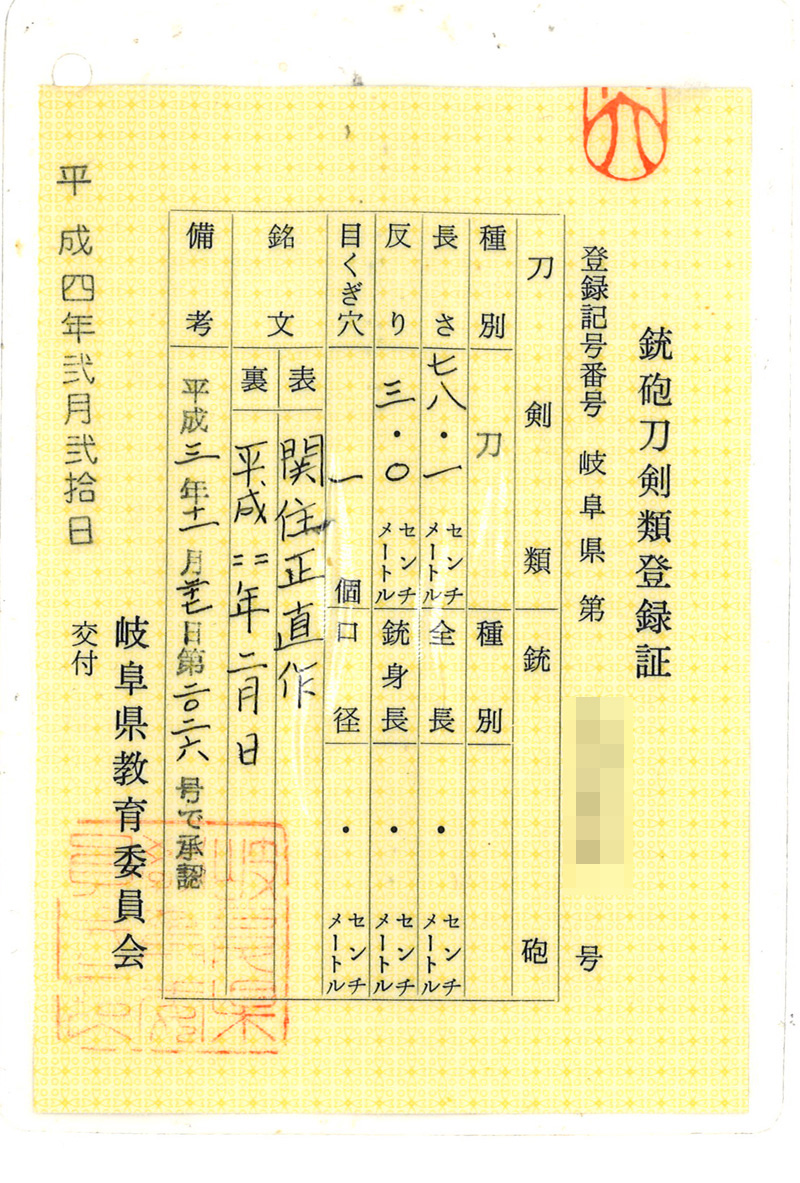 銃砲刀剣類登録証
登録記号番号 岐阜県 第 号
刀剣類 銃砲
種別 刀 種別
長さ 七八・一 センチメートル 全長 ・ センチメートル
反り 三・〇 センチメートル 銃身長 ・ センチメートル
目くぎ穴 一個 口径 ・ センチメートル
銘文 表 関住正直作
裏 平成二年二月日
備考 平成三年十一月廿七日第二〇二六号で承認
岐阜県教育委員会
交付
平成四年弐月弐拾日